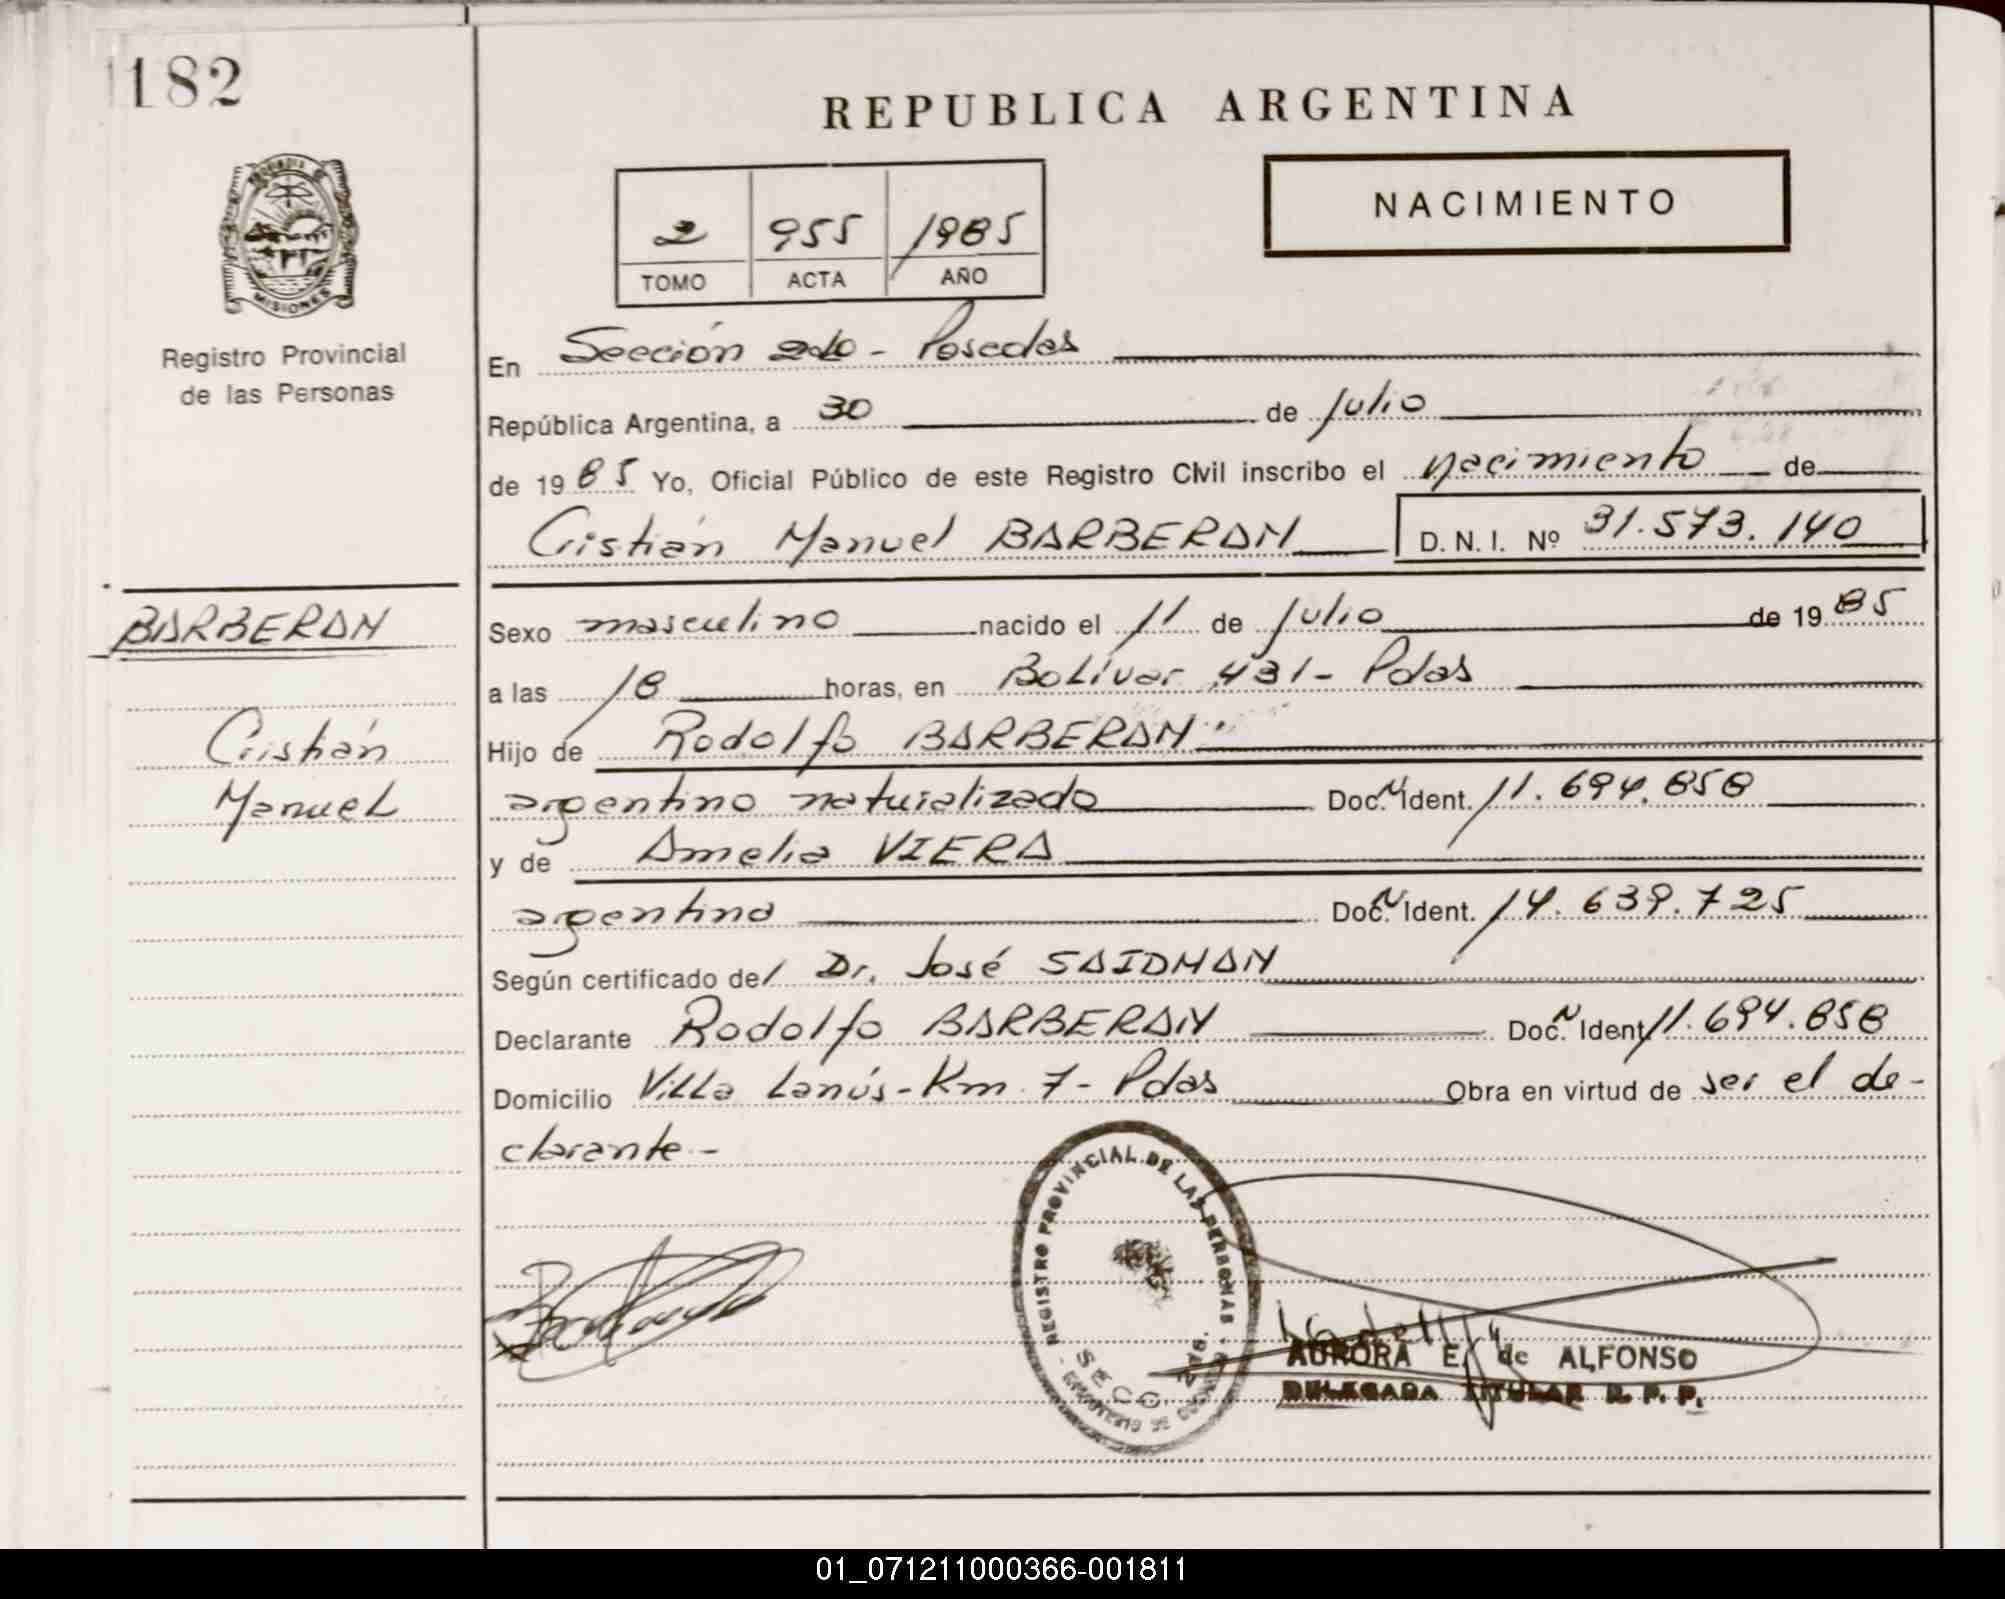 182
REPUBLICA ARGENTINA
NACIMIENTO
2 955 1985
TOMO ACTA AÑO
MISIONES
Registro Provincial
de las Personas
En Sección 2da - Posadas
República Argentina, a 30 de Julio
de 1985 Yo, Oficial Público de este Registro Civil inscribo el nacimiento de
Cristián Manuel BARBERAN D. N. I. Nº 31.573.140
BARBERAN
Cristián
Manuel
Sexo masculino nacido el 11 de Julio de 1985
a las 18 horas, en Bolívar 431 - Pdas
Hijo de Rodolfo BARBERAN
argentino naturalizado Doc. N Ident. 11.694.858
y de Amelia VIERA
argentina Doc. N Ident. 14.639.725
Según certificado del Dr. José SAIDMAN
Declarante Rodolfo BARBERAN Doc. N Ident. 11.694.858
Domicilio Villa Lanús - Km 7 - Pdas Obra en virtud de ser el de-
clarante -
REGISTRO PROVINCIAL DE LAS PERSONAS
SECC. 2da.
AURORA E. de ALFONSO
DELEGADA TITULAR R. P. P.
01_071211000366-001811